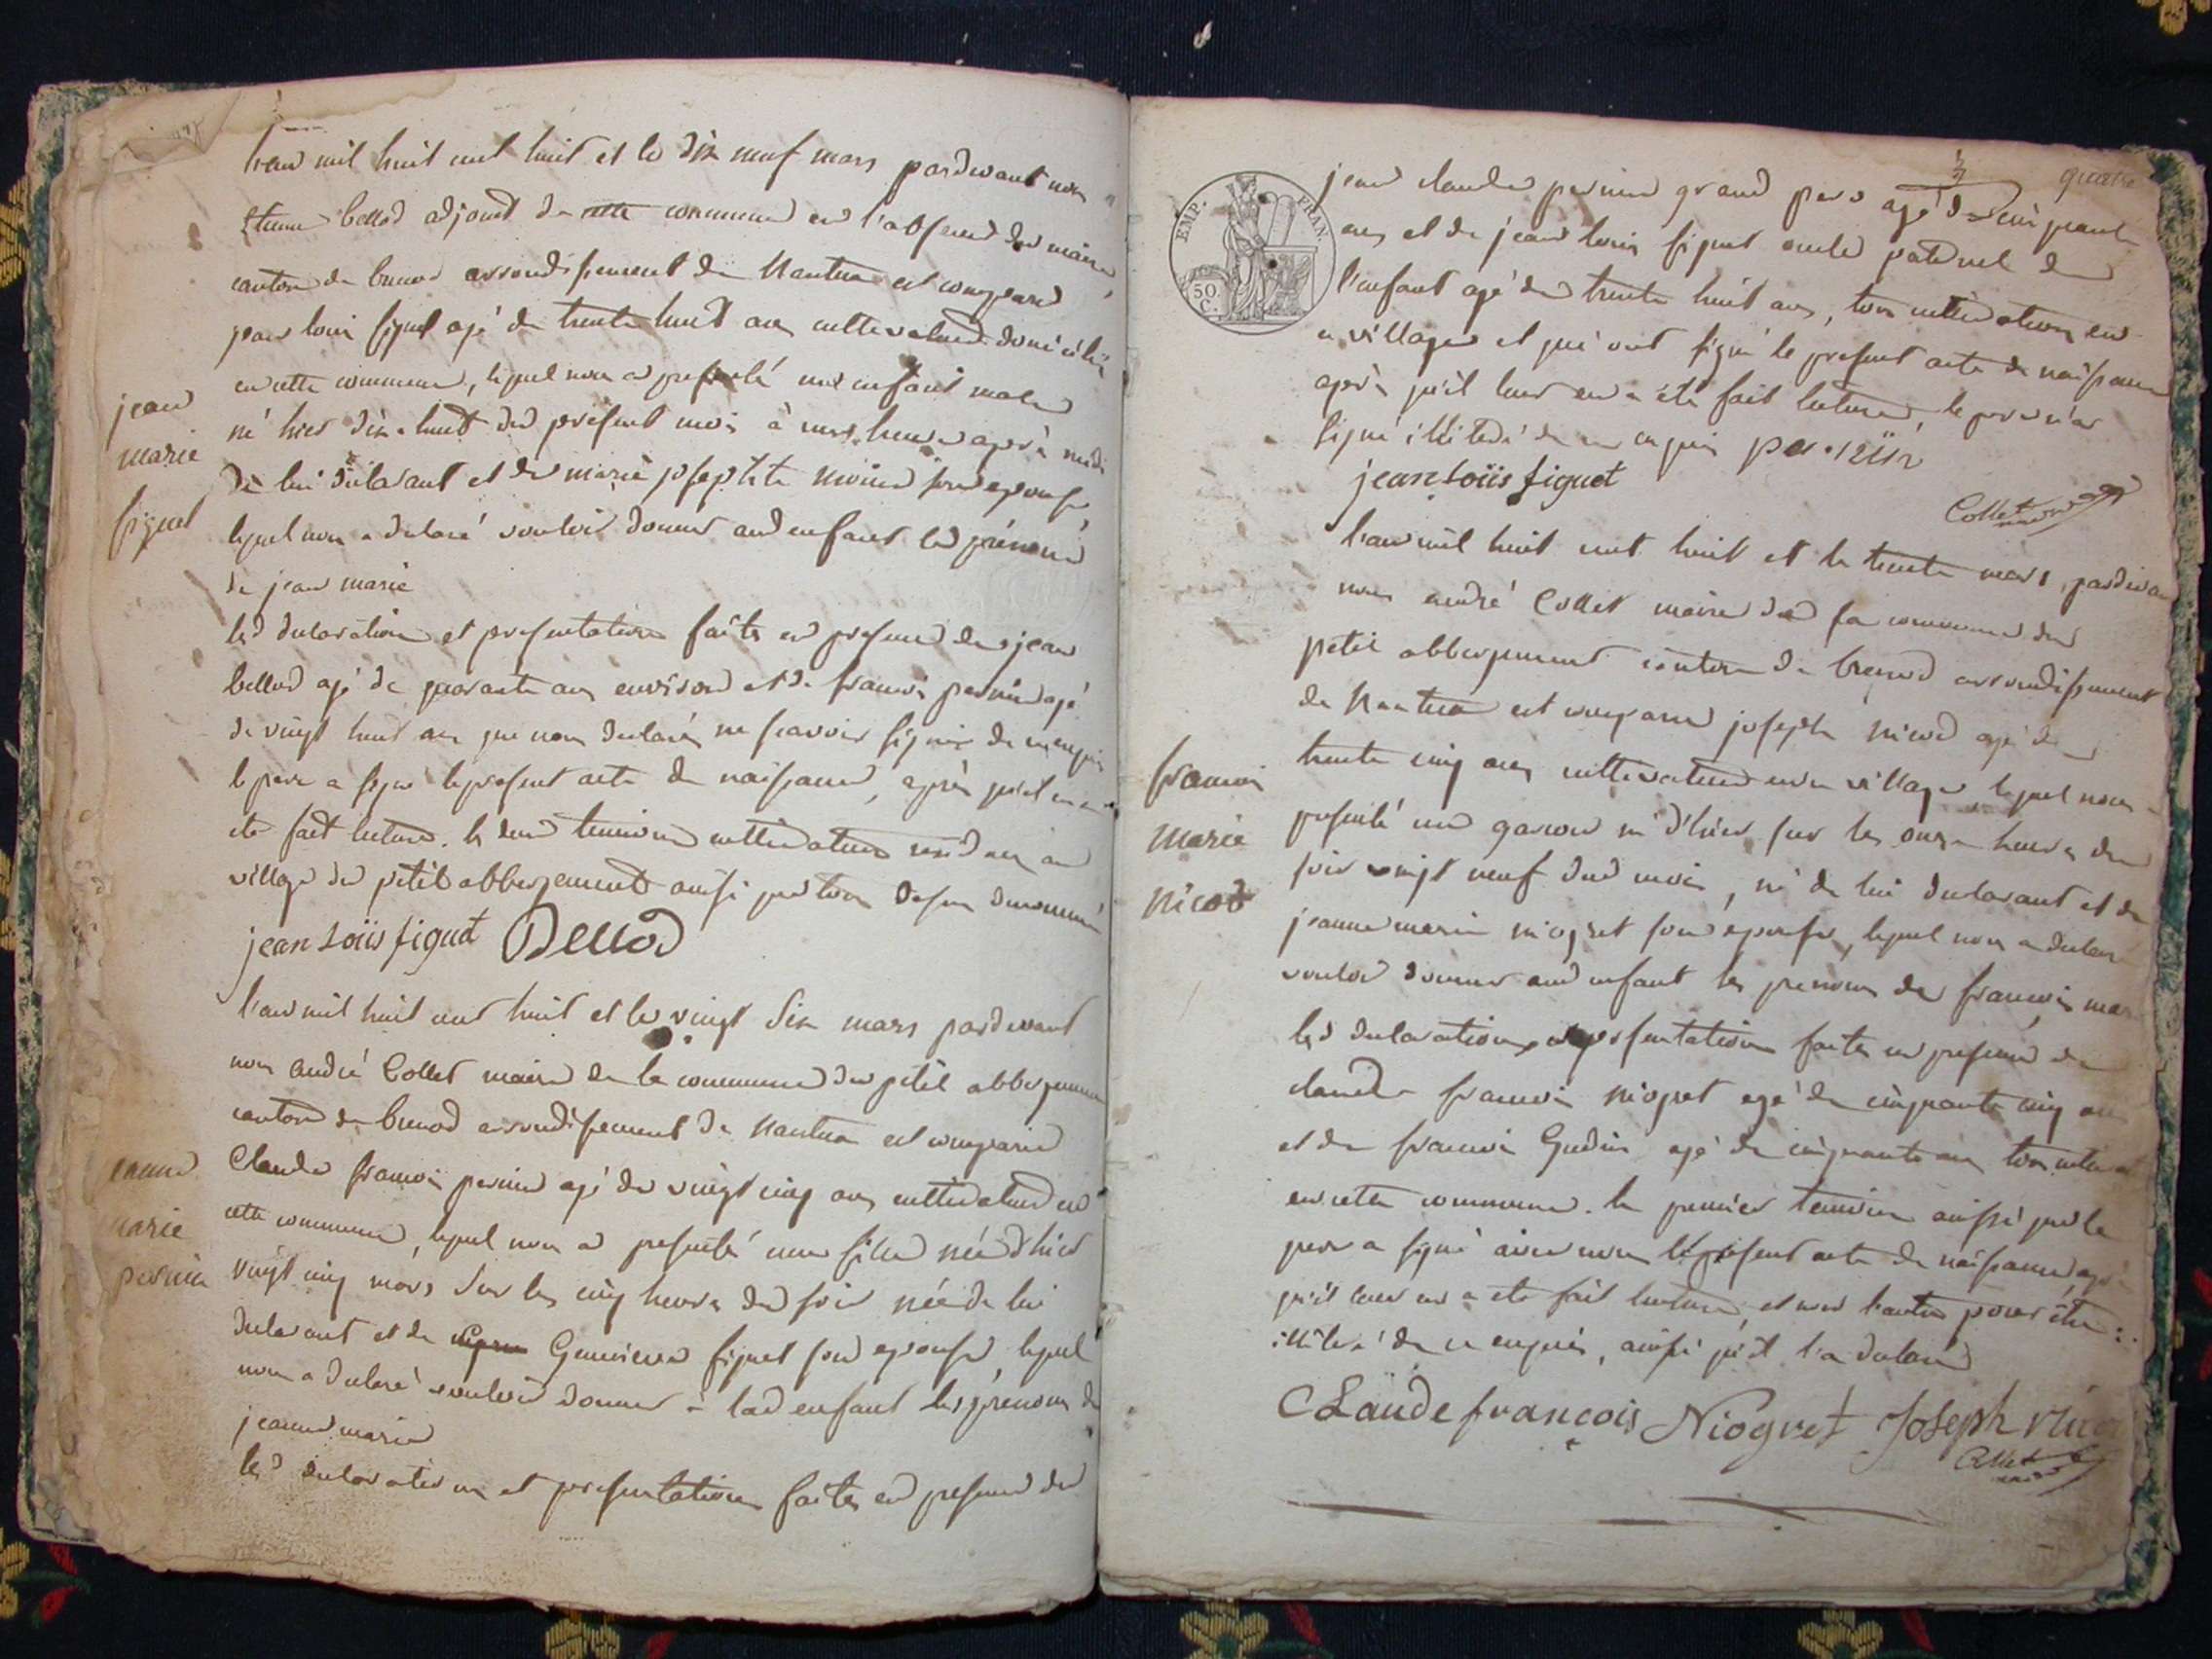 l'an mil huit cent huit et le dix neuf mars pardevant nous
Etienne bellod adjoint de cette commune en l'absence du maire,
canton de brenod arrondissement de Nantua est comparu
jean louis figuet agé de trente huit ans cultivateur domicilié
en cette commune, lequel nous a presenté un enfant male
né hier dix huit du present mois à heures après midi
de lui déclarant et de marie josephte son epouse
lequel nous a déclaré vouloir donner aud enfant le prénom
de jean marie
les d declaration et presentation faites en presence de jean
bellod agé de quarante ans environ et de francois pernin agé
de vingt huit ans que nous declarés ne scavoir signer de ce enquis
le pere a signé le present acte de naissance, après qu'il en a
été fait lecture. les deux temoins cultivateurs au
village du petit abbergement ainsi que tous denommé
jean Loüis figuet Bellod
l'an mil huit cent huit et le vingt six mars pardevant
nous andré Collet maire de la commune du petit abbergement
canton de brenod arrondissement de Nantua est comparu
Claude francois pernin agé de vingt cinq ans cultivateur en
cette commune, lequel nous a presenté une fille née d'hier
vingt cinq mars sur les cinq heures du soir née de lui
declarant et de Genevieve figuet son epouse, lequel
nous a déclaré vouloir donner à lad enfant les prenoms de
jeanne marie
les d declaration et presentation faites en presence de
jean
marie
figuet
jeanne
marie
pernin
quatre
EMP. FRAN.
50 C.
jean claude pernin grand pere agé de cinquante
ans et de jean louis figuet oncle paternel de
l'enfant agé de trente huit ans, tous cultivateurs en
ce village et qui ont signé le present acte de naissance
après qu'il leur en a été fait lecture, le pere n'a
signé illiteré de ce enquis
jean Loüis figuet
Collet maire
l'an mil huit cent huit et le trente mars, pardevant
nous andré Collet maire de la commune du
petit abbergement canton de brenod arrondissement
de Nantua est comparu joseph nicod agé de
trente cinq ans cultivateur en ce village, lequel nous a
presenté un garcon né d'hier sur les onze heures du
soir vingt neuf dud mois, né de lui declarant et de
jeanne marie niogret son epouse, lequel nous a declaré
vouloir donner aud enfant les prenoms de francois marie
les d declaration et presentation faites en presence de
claude francois niogret agé de cinquante cinq ans
et de francois Gudin agé de cinquante ans tous cultivat
en cette commune. le premier temoin ainsi que le
pere a signé avec nous le present acte de naissance, après
qu'il leur en a été fait lecture, et non l'autre pour être
illiteré de ce enquis, ainsi qu'il l'a declaré
Claude francois Niogret Joseph nicod
Collet maire
francois
marie
nicod